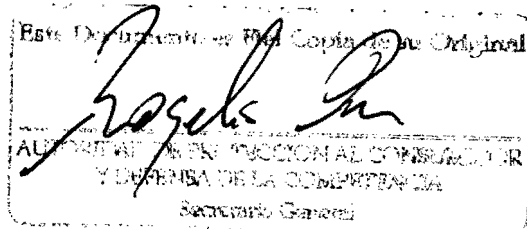 Este Documento es Fiel Copia de su Original
AUTORIDAD DE PROTECCION AL CONSUMIDOR
Y DEFENSA DE LA COMPETENCIA
Secretario General